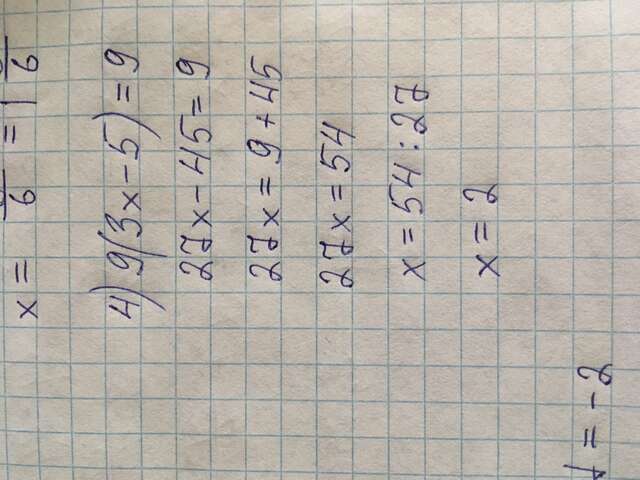 x = /6 = 1 /6
4) 9(3x - 5) = 9
27x - 45 = 9
27x = 9 + 45
27x = 54
x = 54 : 27
x = 2
= -2